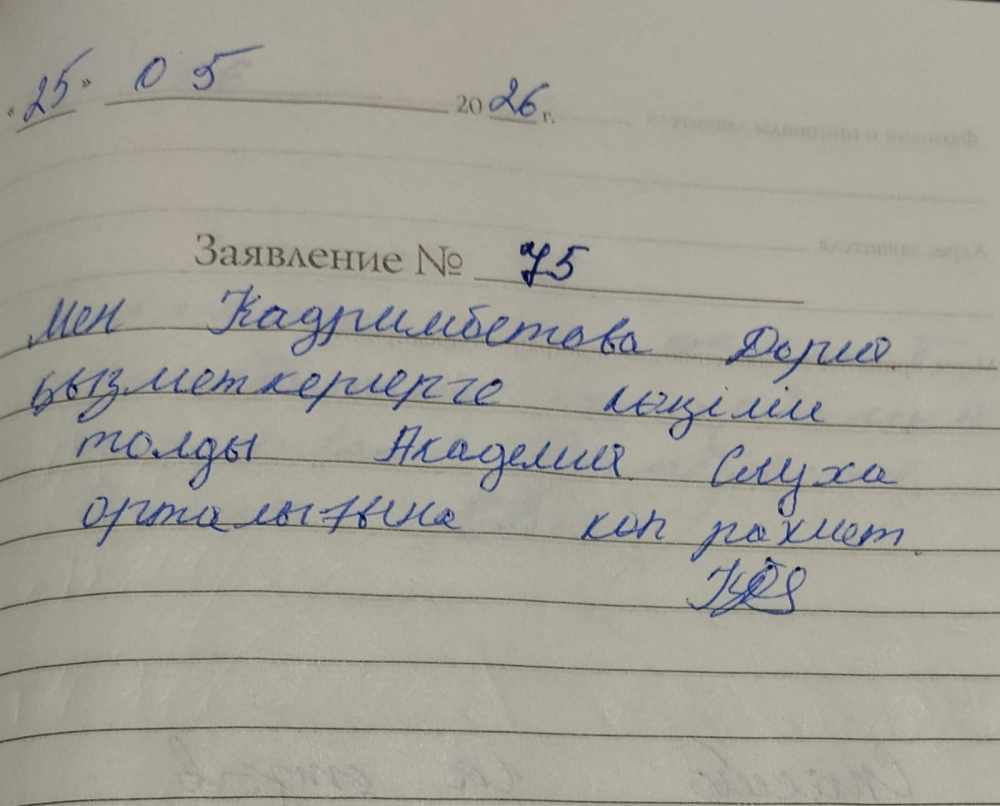 «25» 05 2026 г.
Заявление № 75
Мен Кадримбетова Дария
қызметкерлерге көңілім
толды Академия Слуха
орталығына көп рахмет